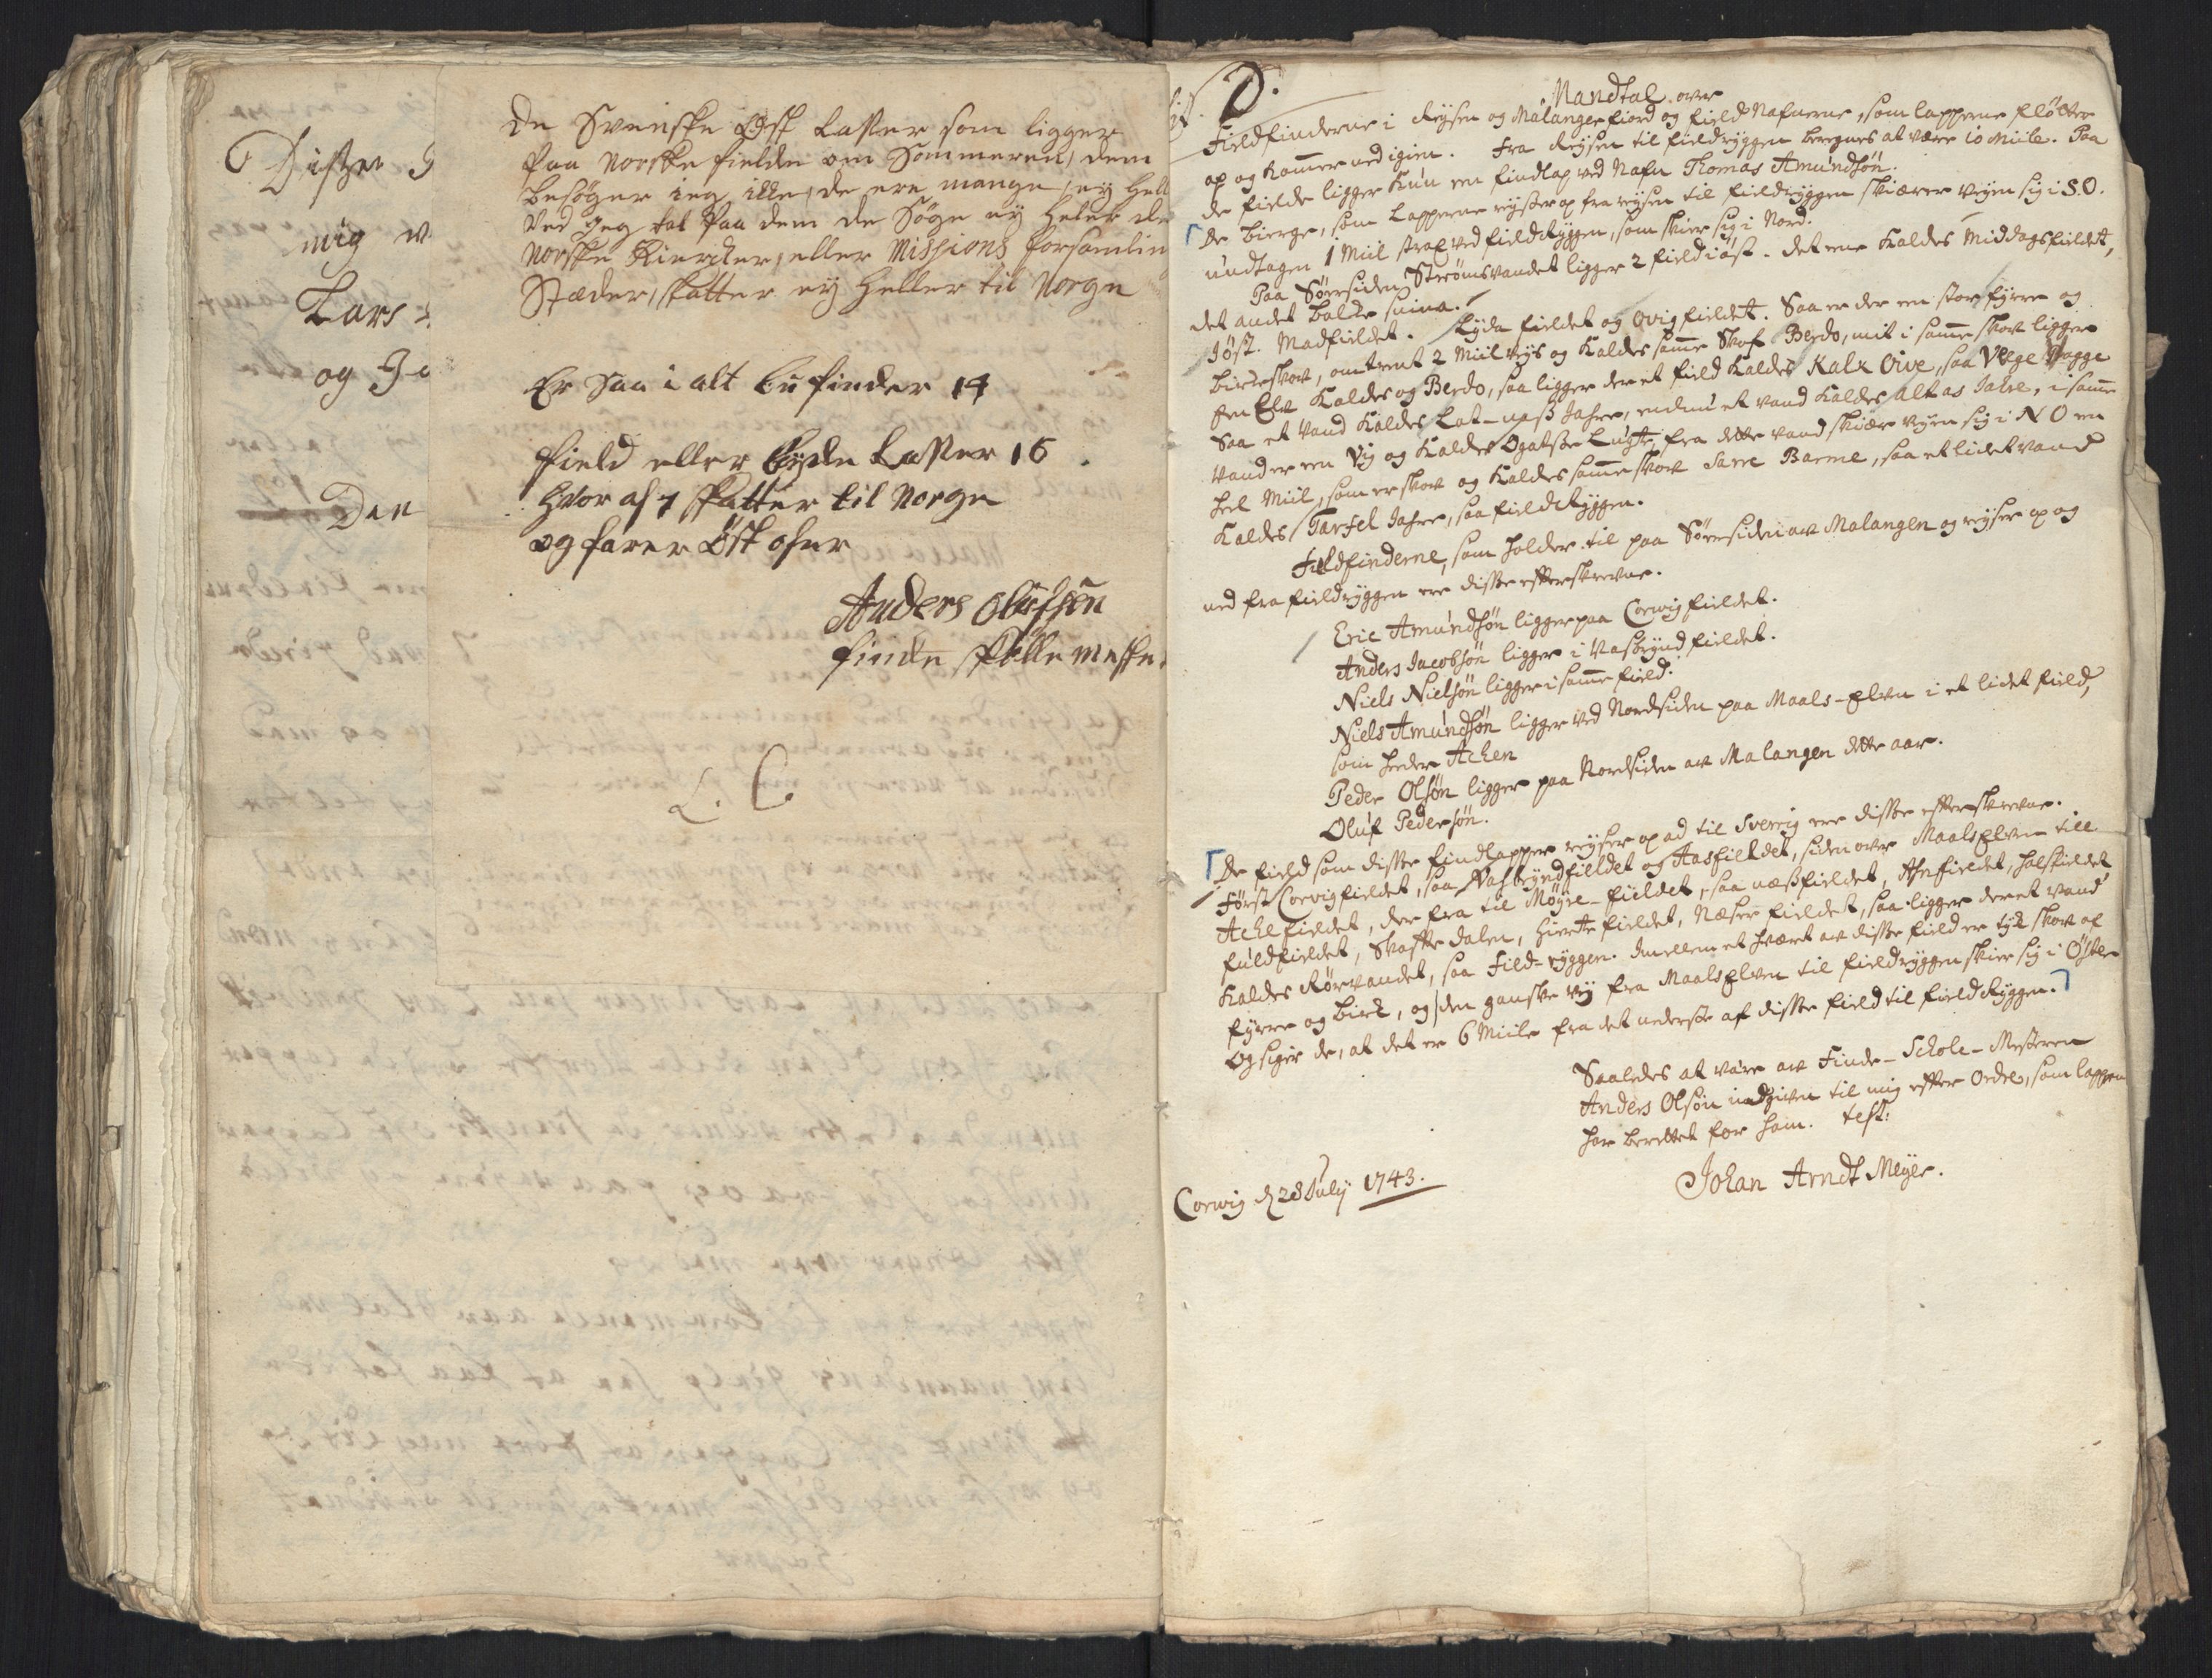 Dißze
mig
Lars
og Ja
Den
De Svenske Øst Lapper som ligger
paa Norske fielde om Sommeren, dem
besøger ieg ikke, de ere mange, ey Hell
Ved Jeg tal paa dem de Søge ey heler de
Norske Kiercker, eller Missions forsamlin
Stæder, skatter ey heller til Norge
Er saa i alt bu finder 14
field eller bygde Lapper 16
Hvor af 7 skatter til Norge
og farer Øst ofver
Anders Olufsen
finde skolle mester
L. C
D:
Mandtal over
Fieldfinderne i Reysen og Malangerfiord og field Nafnerne, som lapperne fløtter
op og kom̄er ned igien. Fra Reysen til fieldryggen beregnes at være 10 Miile. Paa
de fielde ligger kun en findlap ved Nafn Thomas Amundsøn.
De bierge, som Lapperne reyser op fra reysen til fieldryggen skiærer veyen sig i S.O.
undtagen 1 Miil strax ved fieldryggen, som skiær sig i Nord.
Paa Sørsiden Strømsvandet ligger 2 field i øst. det ene kaldes Middagsfieldet,
det andet balde suina.
Iøst. Madfieldet. Lyda fieldet og Ovigfieldet. Saa er der en stor fyrre og
birkeskov, omtrent 2 Miil veys og kaldes sam̄e Skof Berdo, mit i sam̄e skov ligger
en Elv kaldes og Berdo, saa ligger der et field kaldes Kalx Oive, saa Velge Vagge
Saa et Vand kaldes Lat-naß Jahre, endnu et vand kaldes Altas Jahre, i sam̄e
Vand er en Vig og kaldes Ogatße Lugte, fra dette vand skiær veyen sig i NO en
heel Miil, som er skov og kaldes sam̄e skov Sarre Barme, saa et lidet vand
kaldes Tarfel Jahre, saa fieldryggen.
Fieldfinderne, som holder til paa Sørsiden av Malangen og reyser op og
ned fra fieldryggen ere disse efterskrevne.
Eric Amundsøn ligger paa Corvigfieldet.
Anders Jacobsøn ligger i Vasbrynd fieldet.
Niels Nielsøn ligger i sam̄e field.
Niels Amundsøn ligger ved Nordsiden paa Maals-elven i et lidet field,
som heder Achen
Peder Olsøn ligger paa Nordsiden av Malangen dette aar.
Oluf Pedersøn.
De field som disse findlapper reyser op ad til Sverrig ere disse efterskrevne.
Først Corvigfieldet, saa Vasbryndfieldet og Aasfieldet, siden over Maalselven till
Achefieldet, der fra til Møyre-fieldet, saa næßfieldet, Ahnfieldet, holtfieldet
fuldfieldet, Skaftedalen, Hierttefieldet, Næser fieldet, saa ligger der et vand
kaldes Rørvandet, saa Field-ryggen. Imellem et hvært av disse field er tyk skov af
fyrre og birk, og den ganske vey fra Maalselven til fieldryggen skiær sig i Øster
Og siger de, at det er 6 Miile fra det nederste af disse field til fieldryggen.
Saaledes at være av Finde-Schole-Mesteren
Anders Olsøn indgiven til mig efter Ordre, som lappen
har berettet for ham. test:
Johan Arndt Meyer.
Corvig d 28 July 1743.